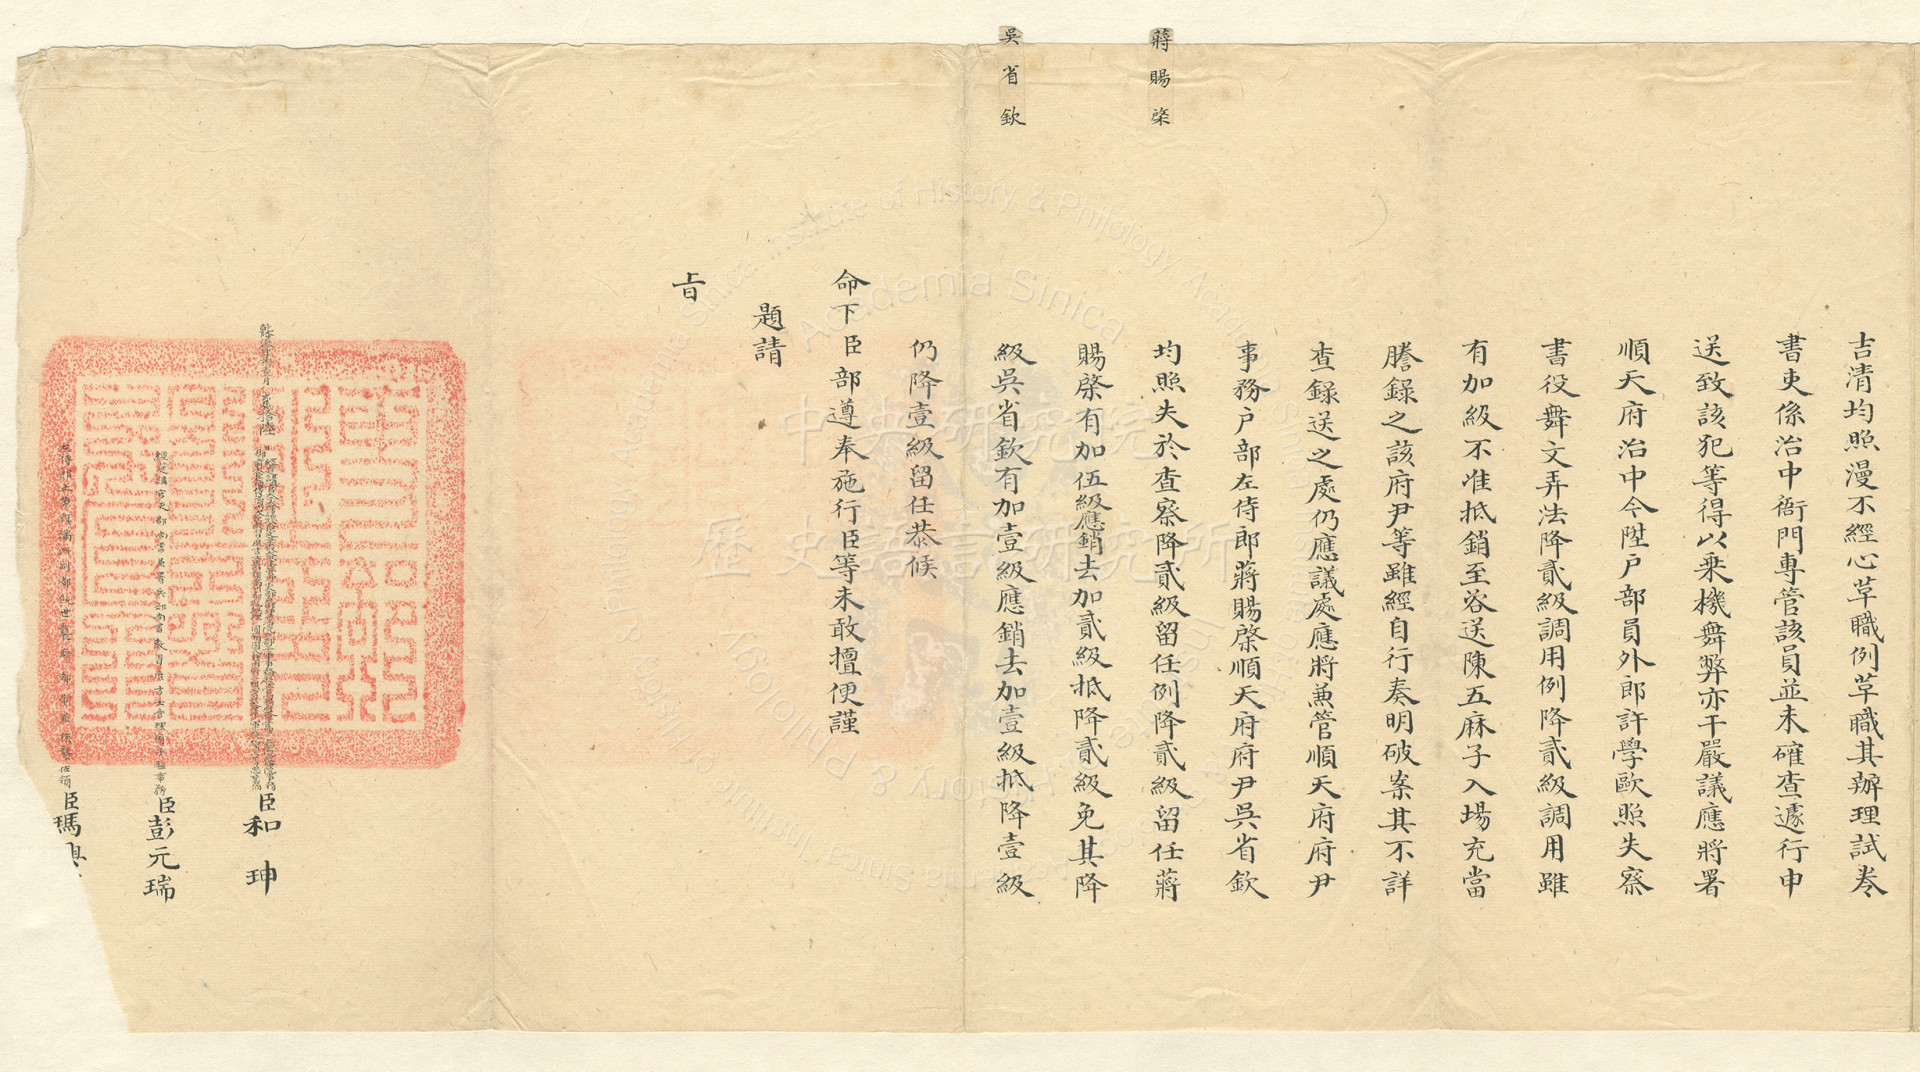 蔣賜棨
吳省欽
吉清均照漫不經心革職例革職其辦理試卷
書吏係治中衙門專管該員並未確查遽行申
送致該犯等得以乘機舞弊亦干嚴議應將署
順天府治中今陞戶部員外郎許學歐照失察
書役舞文弄法降貳級調用例降貳級調用雖
有加級不准抵銷至咨送陳五麻子入場充當
謄錄之該府尹等雖經自行奏明破案其不詳
查錄送之處仍應議處應將兼管順天府府尹
事務戶部左侍郎蔣賜棨順天府府尹吳省欽
均照失於查察降貳級留任例降貳級留任蔣
賜棨有加伍級應銷去加貳級抵降貳級免其降
級吳省欽有加壹級應銷去加壹級抵降壹級
仍降壹級留任恭候
命下臣部遵奉施行臣等未敢擅便謹
題請
旨
臣和珅
經筵講官吏部尚書兼署兵部尚書教習庶吉士管理國子監事務臣彭元瑞
臣瑪興
中央研究院
歷史語言研究所
Academia Sinica
Institute of History & Philology, Academia Sinica